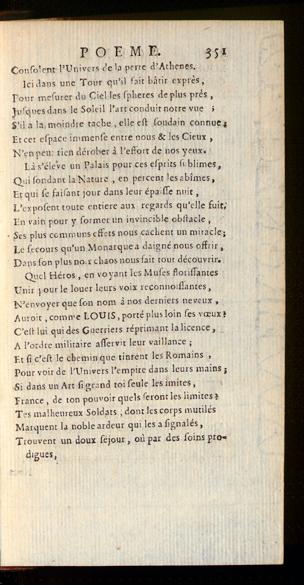 POEME. 351
Consolent l'Univers de la perte d'Athenes.
Ici dans une Tour qu'il fait bâtir exprès,
Pour mesurer du Ciel les spheres de plus près,
Jusques dans le Soleil l'art conduit notre vue ;
S'il a la moindre tache, elle est soudain connue;
Et cet espace immense entre nous & les Cieux,
N'en peut rien dérober à l'effort de nos yeux.
Là s'éleve un Palais pour ces esprits sublimes,
Qui sondant la Nature, en percent les abîmes,
Et qui se faisant jour dans leur épaisse nuit,
L'exposent toute entiere aux regards qu'elle fuit;
En vain pour y former un invincible obstacle,
Ses plus communs effets nous cachent un miracle;
Le secours qu'un Monarque a daigné nous offrir,
Dans son plus noir chaos nous fait tout découvrir.
Quel Héros, en voyant les Muses florissantes
Unir pour le louer leurs voix reconnoissantes,
N'envoyer que son nom à nos derniers neveux,
Auroit, comme LOUIS, porté plus loin ses vœux?
C'est lui qui des Guerriers réprimant la licence,
A l'ordre militaire asservit leur vaillance ;
Et si c'est le chemin que tinrent les Romains,
Pour voir de l'Univers l'empire dans leurs mains;
Si dans un Art si grand toi seule les imites,
France, de ton pouvoir quels seront les limites?
Tes malheureux Soldats, dont les corps mutilés
Marquent la noble ardeur qui les a signalés,
Trouvent un doux sejour, où par des soins pro-
digues,